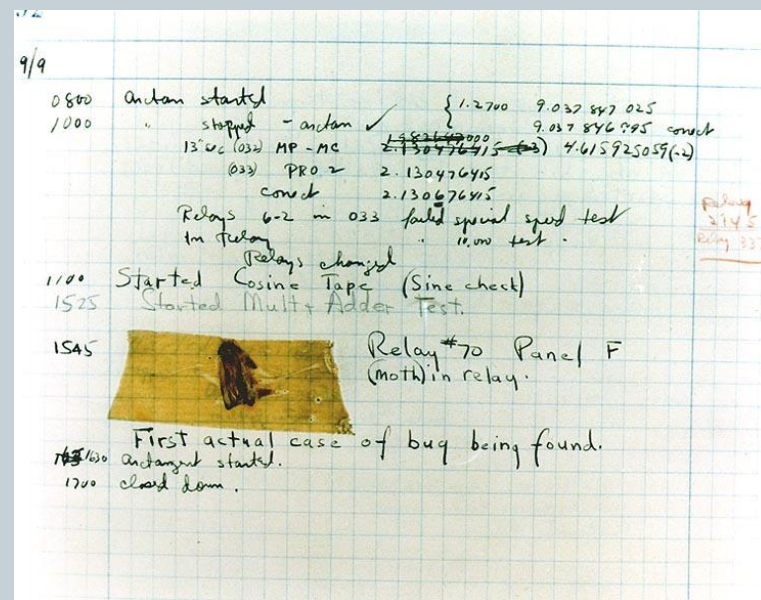 9/9
0800 arctan started { 1.2700 9.037 847 025
1000 " stopped - arctan ✓ 9.037 846 995 correct
13"uc (032) MP - MC 2.130476415 (-3) 4.615925059(-2)
(033) PRO 2 2.130476415
correct 2.130676415
Relays 6-2 in 033 failed special speed test
In Relay " 10,000 test .
Relays changed
1100 Started Cosine Tape (Sine check)
1525 Started Mult + Adder Test.
1545 Relay #70 Panel F
(moth) in relay.
First actual case of bug being found.
1630 arctangent started.
1700 closed down.
Relay